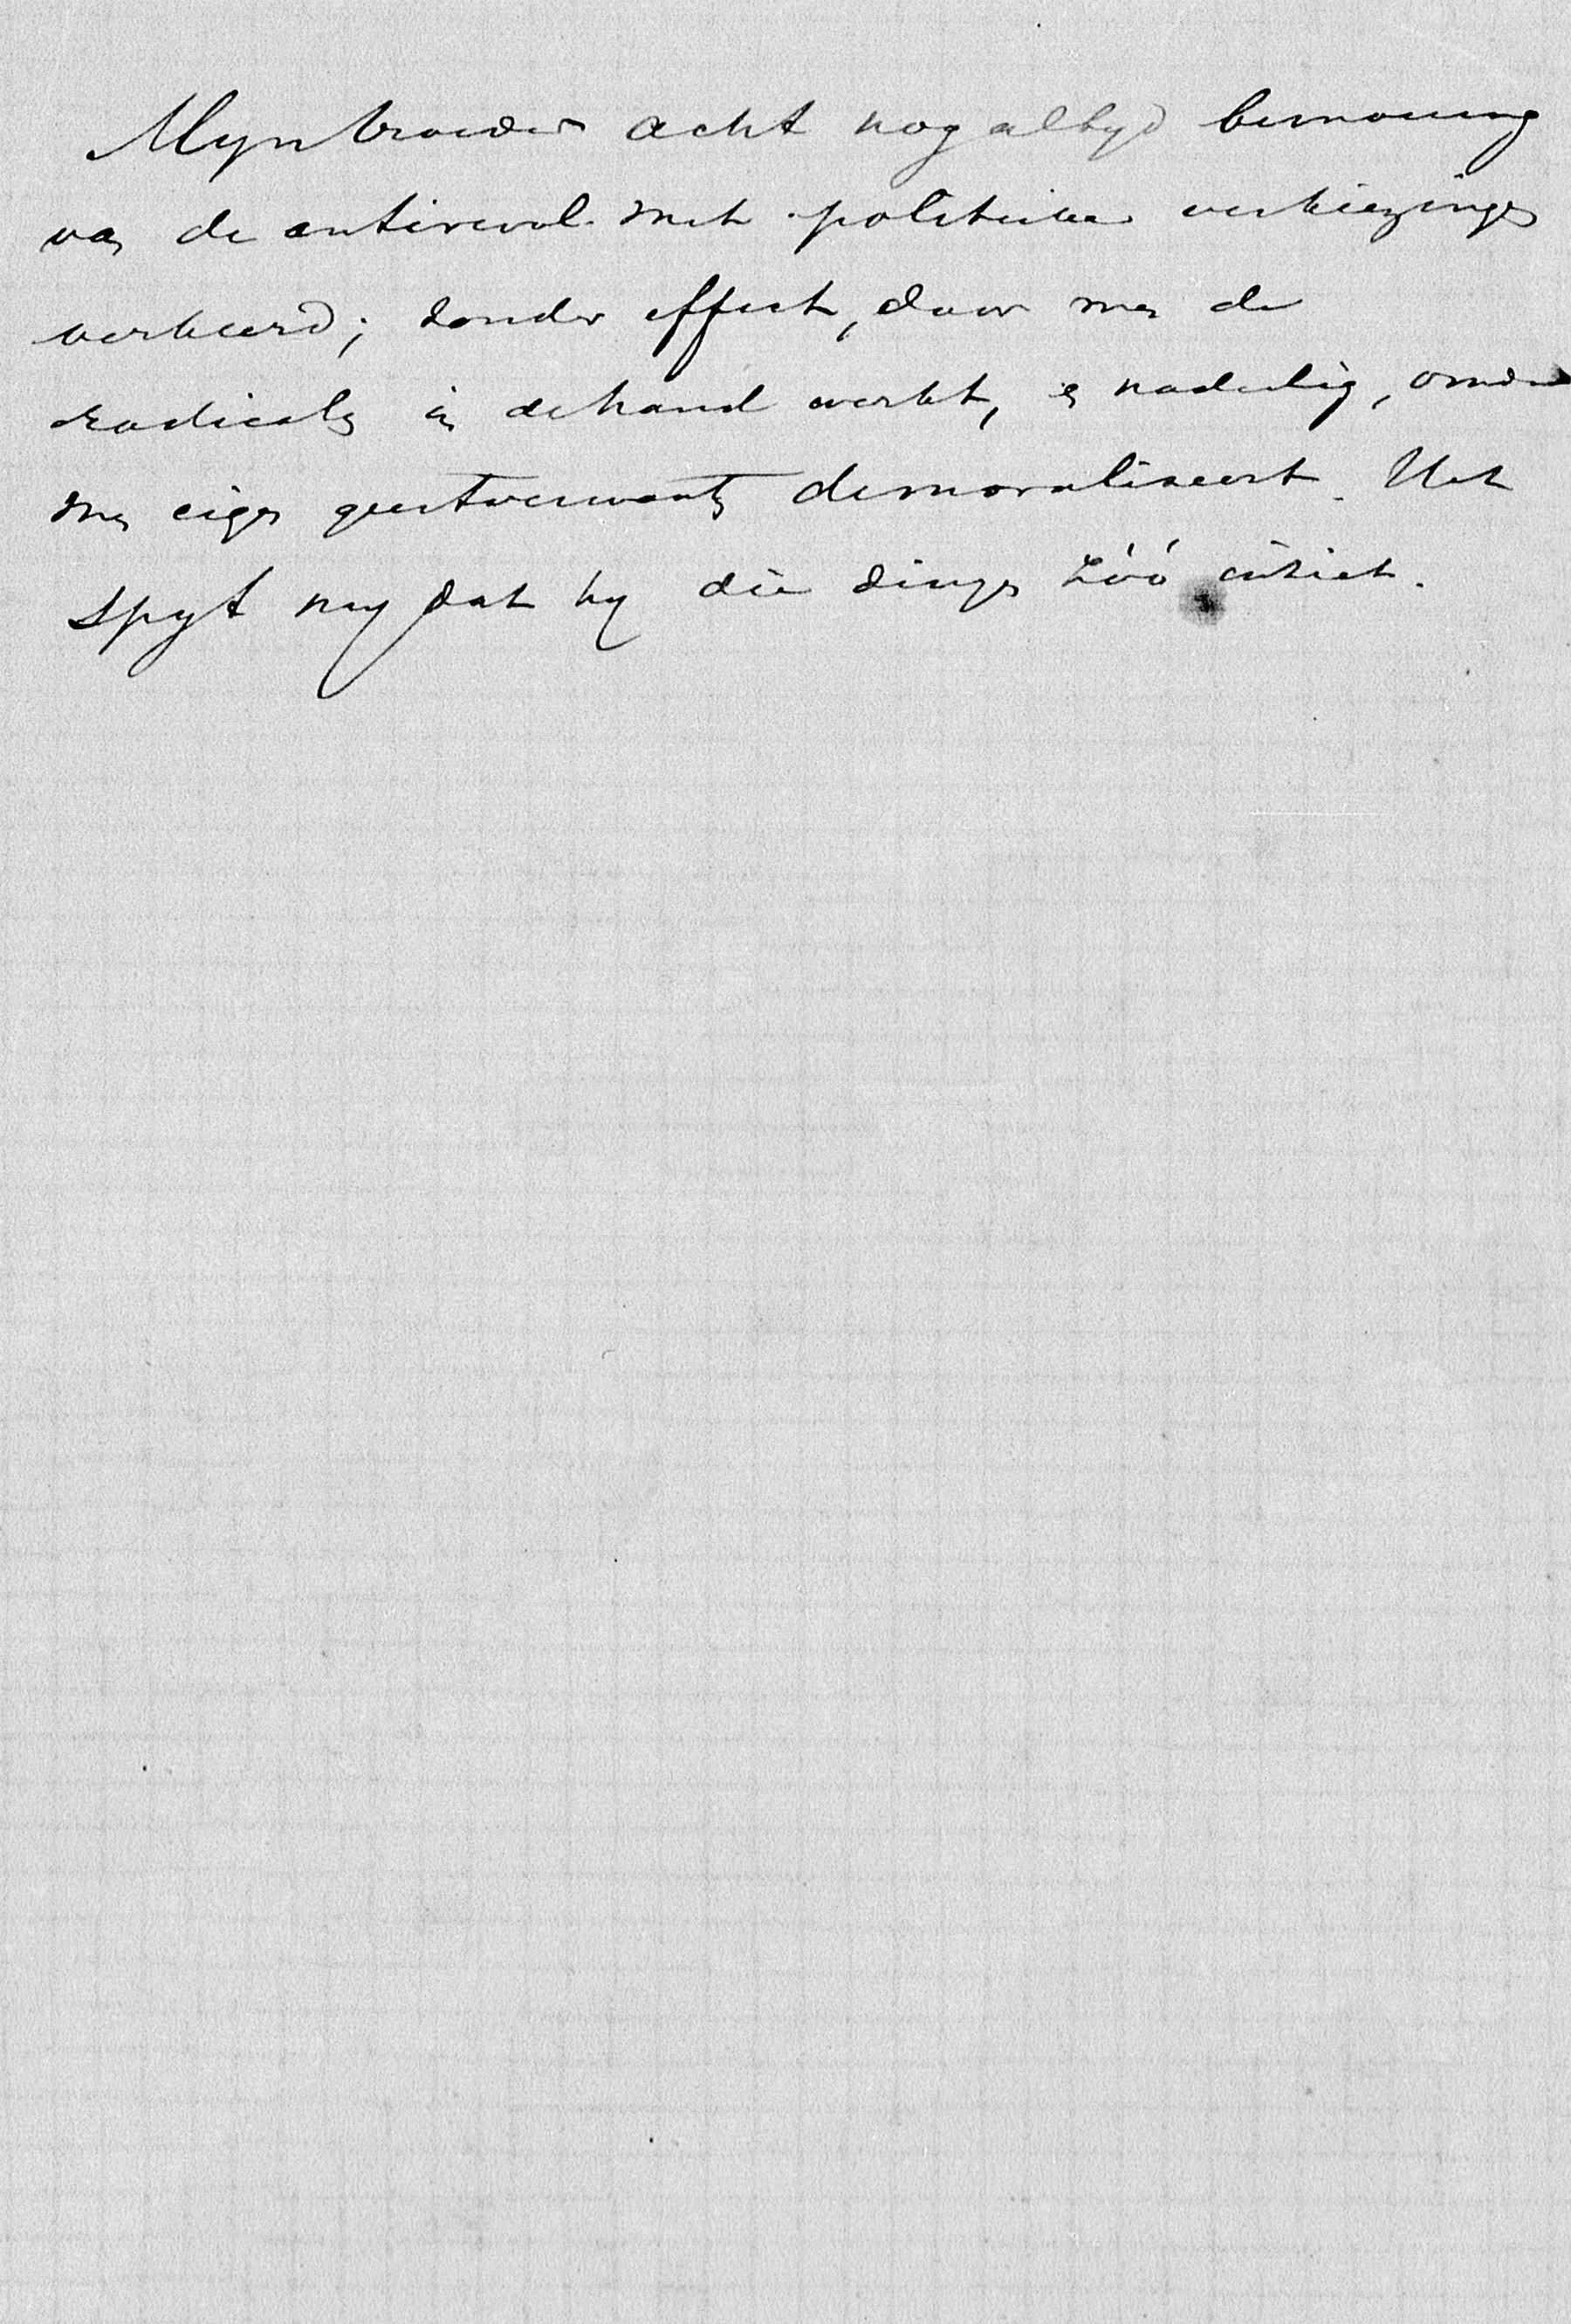 Mijn broeder acht nog altijd bemoeiing
van de antirevol. met politieke verkiezingen
verkeerd; zonder effect, daar men de
radicalen in de hand werkt, en nadelig, omdat
men eigen geestverwanten demoraliseert. Het
spijt mij dat hij die dingen zóó inziet.